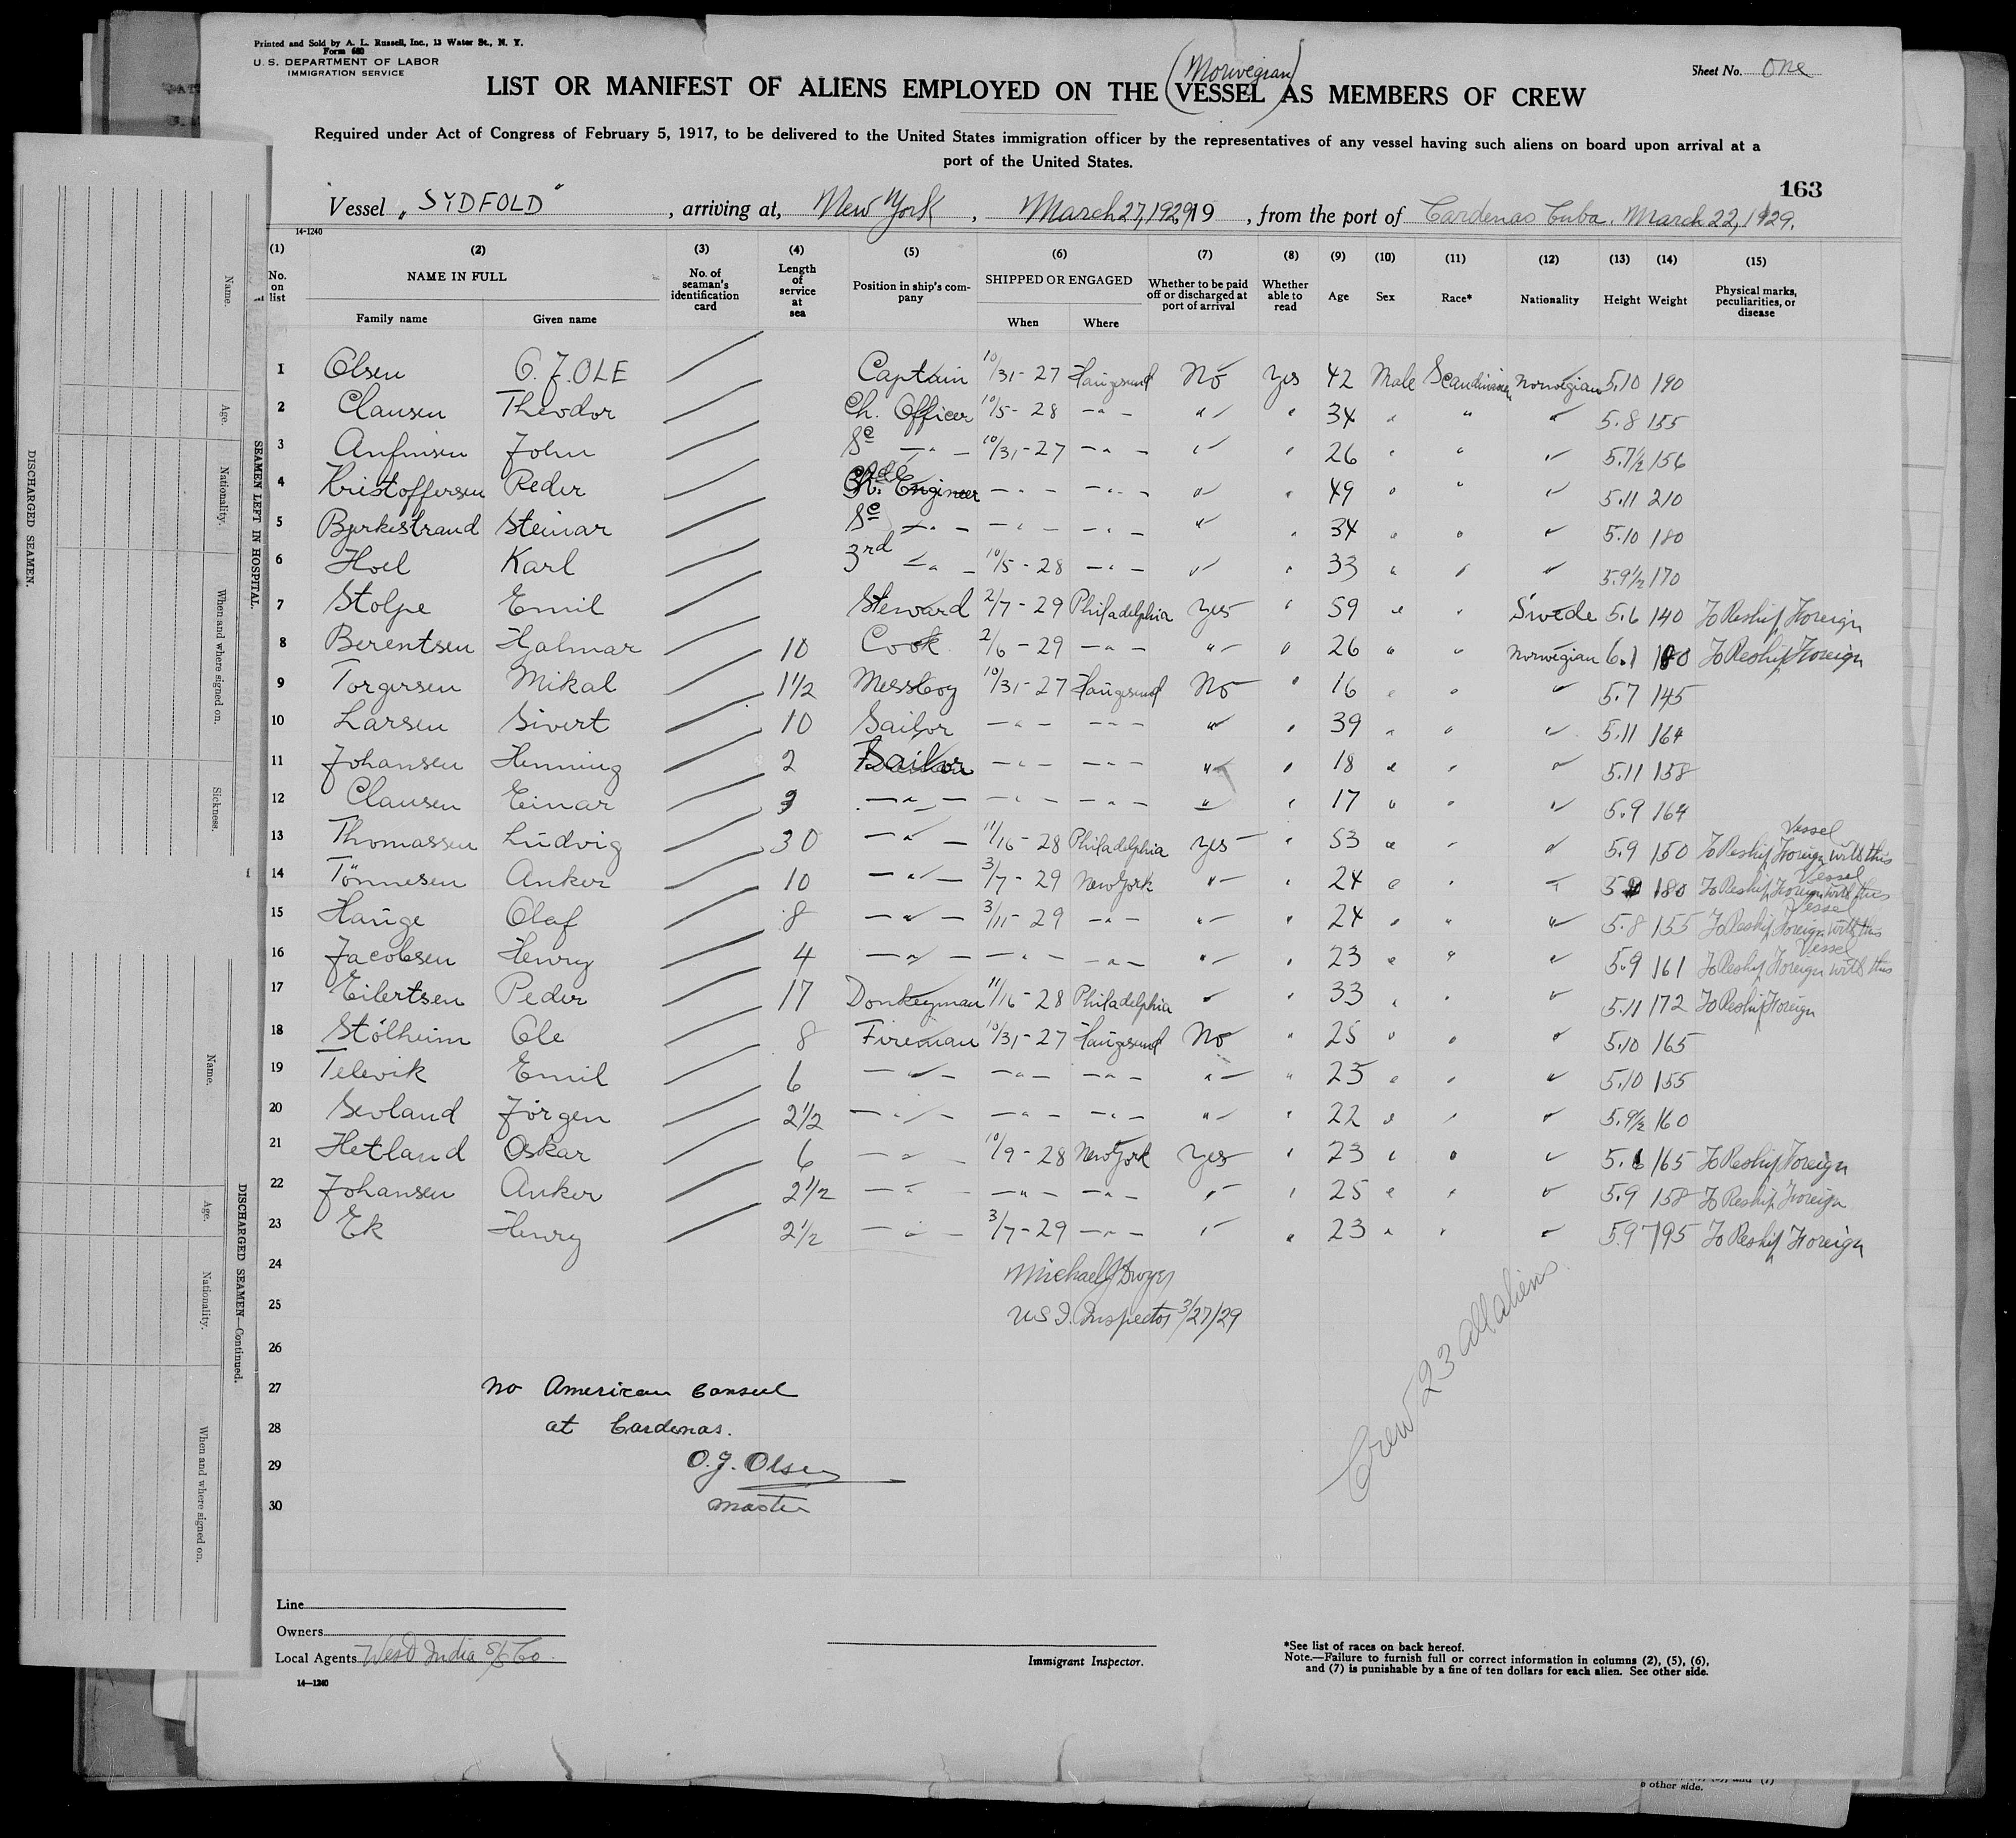 Printed and Sold by A. L. Russell, Inc., 13 Water St., N. Y.
Form 680
U. S. DEPARTMENT OF LABOR
IMMIGRATION SERVICE
Sheet No. One
(Norwegian)
LIST OR MANIFEST OF ALIENS EMPLOYED ON THE VESSEL AS MEMBERS OF CREW
Required under Act of Congress of February 5, 1917, to be delivered to the United States immigration officer by the representatives of any vessel having such aliens on board upon arrival at a
port of the United States.
163
Vessel „SYDFOLD", arriving at, New York, March 27, 1929 19, from the port of Cardenas Cuba. March 22, 1929.
14-1240
(1) (2) (3) (4) (5) (6) (7) (8) (9) (10) (11) (12) (13) (14) (15)
No. on list NAME IN FULL Family name Given name No. of seaman's identification card Length of service at sea Position in ship's company SHIPPED OR ENGAGED When Where Whether to be paid off or discharged at port of arrival Whether able to read Age Sex Race* Nationality Height Weight Physical marks, peculiarities, or disease
1 Olsen O. J. OLE Captain 10/31-27 Haugesund No Yes 42 Male Scandinavian Norwegian 5.10 190
2 Clausen Theodor Ch. Officer 10/5-28 -"- " " 34 " " " 5.8 155
3 Anfinsen John 2e -"- 10/31-27 -"- " " 26 " " " 5.7½ 156
4 Kristoffersen Peder Ch. Engineer -"- -"- " " 49 " " " 5.11 210
5 Bjerkestrand Steinar -"- -"- -"- " " 34 " " " 5.10 180
6 Hoel Karl 3rd -"- 10/5-28 -"- " " 33 " " " 5.9½ 170
7 Stolpe Emil Steward 2/7-29 Philadelphia Yes " 59 " " Swede 5.6 140 To Reship Foreign
8 Berentsen Halmar 10 Cook 2/6-29 -"- " " 26 " " Norwegian 6.1 180 To Reship Foreign
9 Torgersen Mikal 1½ Messboy 10/31-27 Haugesund No " 16 " " " 5.7 145
10 Larsen Sivert 10 Sailor -"- -"- " " 39 " " " 5.11 164
11 Johansen Henning 2 Sailor -"- -"- " " 18 " " " 5.11 158
12 Clausen Einar 3 -"- -"- -"- " " 17 " " " 5.9 164
13 Thomassen Ludvig 30 -"- 11/16-28 Philadelphia Yes " 53 " " " 5.9 150 To Reship Foreign with this Vessel
14 Tönnesen Anker 10 -"- 3/7-29 New York " " 24 " " " 180 To Reship Foreign with this Vessel
15 Hauge Olaf 8 -"- 3/11-29 -"- " " 24 " " " 5.8 155 To Reship Foreign with this Vessel
16 Jacobsen Henry 4 -"- -"- -"- " " 23 " " " 5.9 161 To Reship Foreign with this Vessel
17 Eilertsen Peder 17 Donkeyman 11/16-28 Philadelphia " " 33 " " " 5.11 172 To Reship Foreign
18 Stölheim Ole 8 Fireman 10/31-27 Haugesund No " 25 " " " 5.10 165
19 Televik Emil 6 -"- -"- -"- " " 23 " " " 5.10 155
20 Sevland Jörgen 2½ -"- -"- -"- " " 22 " " " 5.9½ 160
21 Hetland Oskar 6 -"- 10/9-28 New York Yes " 23 " " " 5.6 165 To Reship Foreign
22 Johansen Anker 2½ -"- -"- -"- " " 25 " " " 5.9 158 To Reship Foreign
23 Ek Henry 2½ -"- 3/7-29 -"- " " 23 " " " 5.9 195 To Reship Foreign
24 Michael J Dwyer
25 U S I. Inspector 3/27/29
26
27 no American Consul
28 at Cardenas.
29 O. J. Olsen
30 master
Crew 23 all aliens
Line
Owners
Local Agents West India S/S Co.
14—1240
Immigrant Inspector.
*See list of races on back hereof.
Note.—Failure to furnish full or correct information in columns (2), (5), (6),
and (7) is punishable by a fine of ten dollars for each alien. See other side.
DISCHARGED SEAMEN.
SEAMEN LEFT IN HOSPITAL.
Name.
Age.
Nationality.
When and where signed on.
Sickness.
DISCHARGED SEAMEN—Continued.
Name.
Age.
Nationality.
When and where signed on.
e other side.